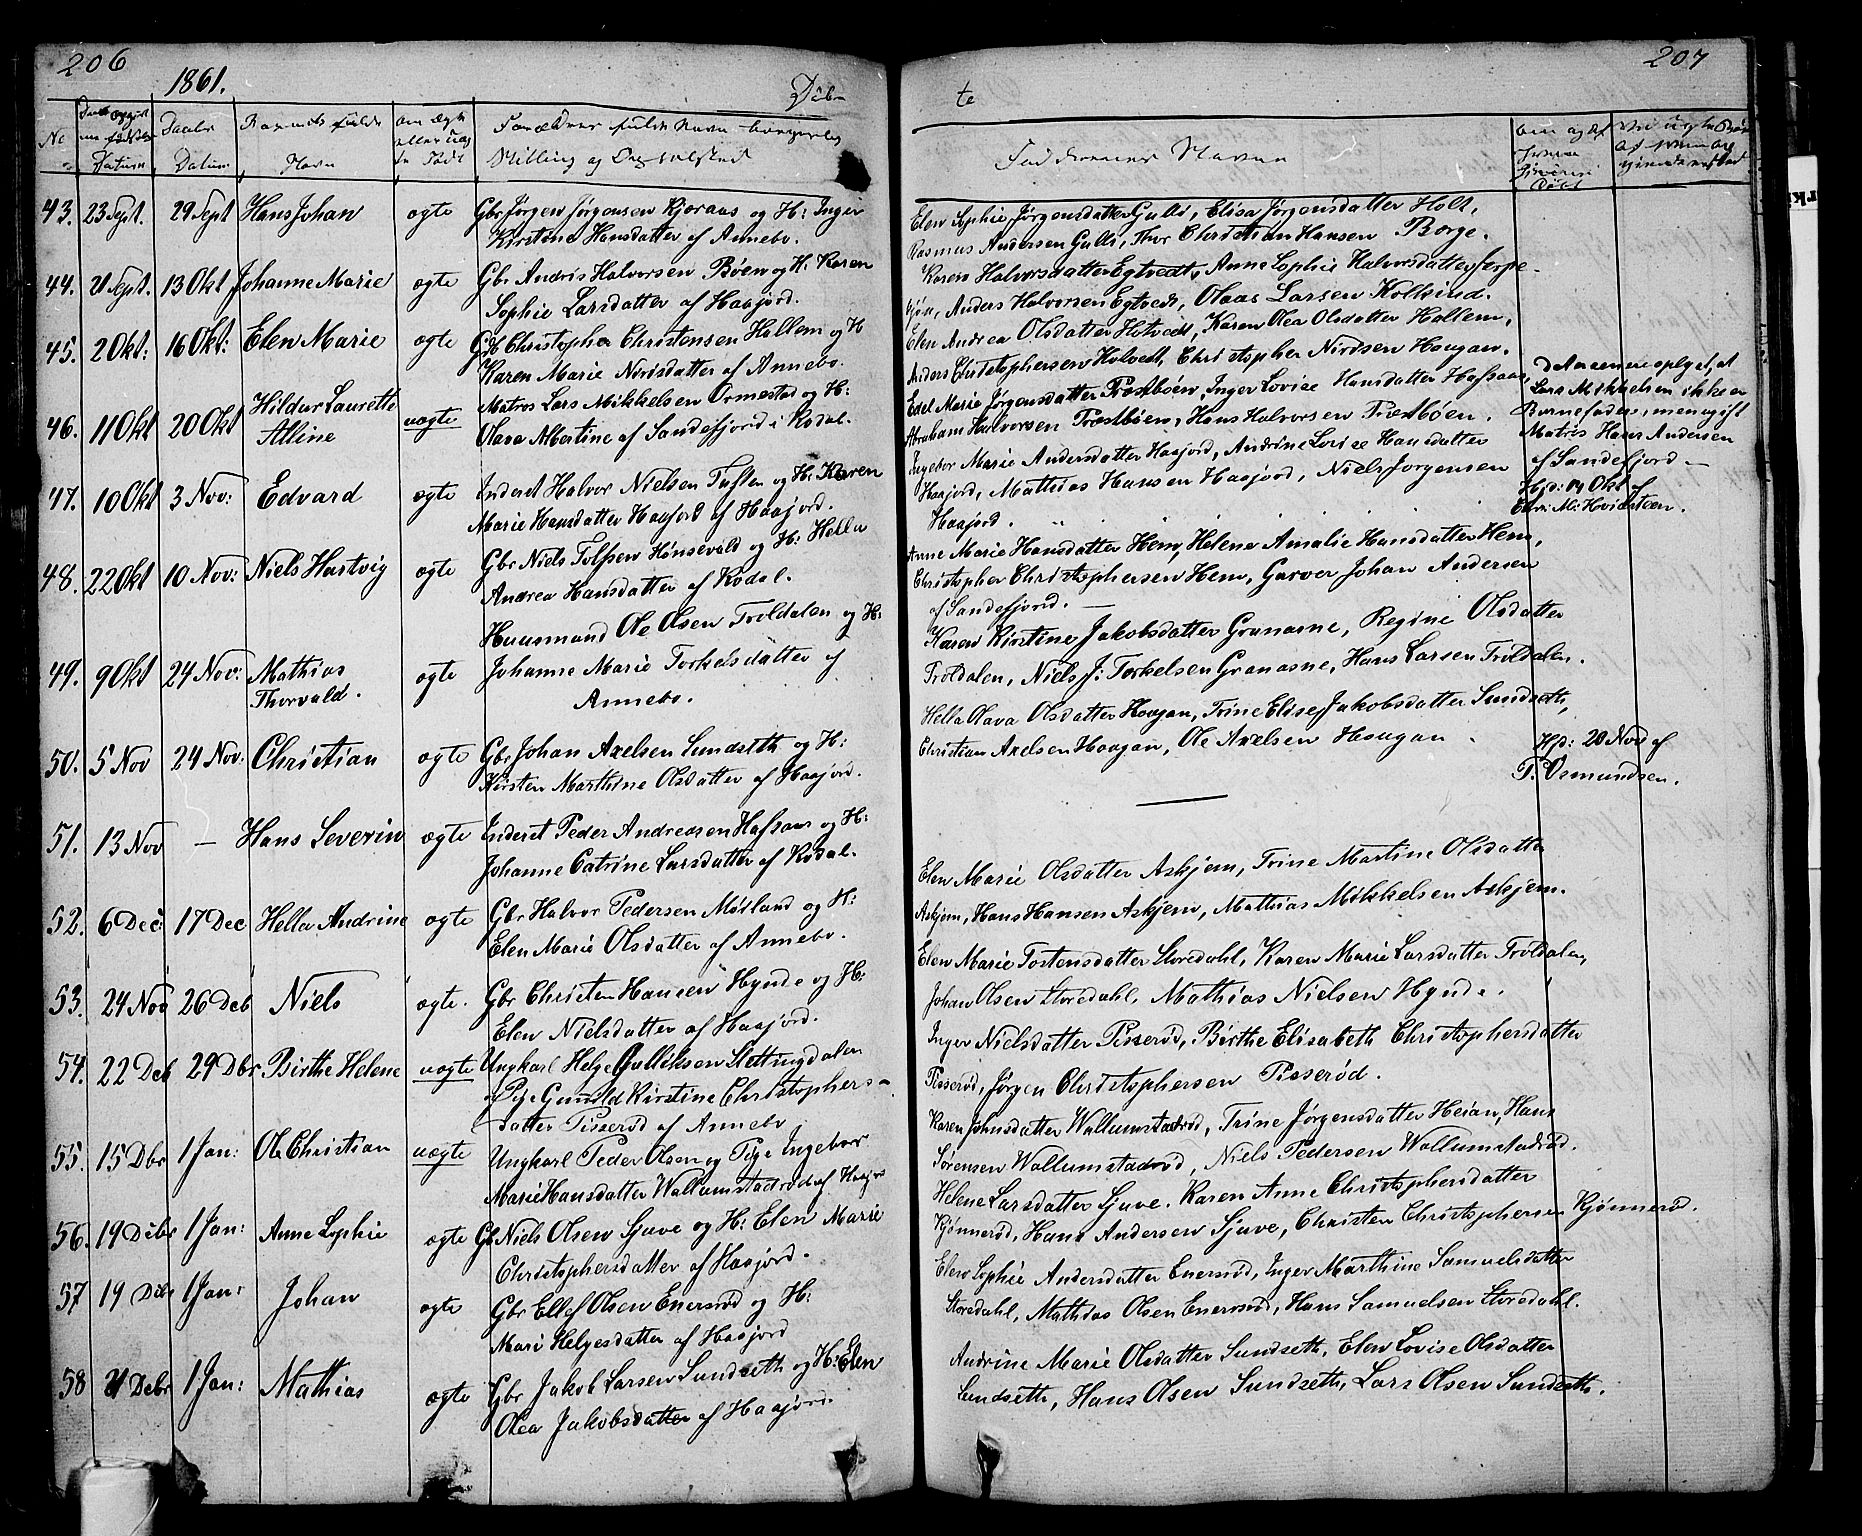 206
1861.
Døb-
No
Datum
Daabs
Datum
Barnets fulde
Navn
om ægte
eller uæg-
te født
Forældres fulde Navn borgerlig
Stilling og Opholdsted
43. 23 Sept. 29 Sept Hans Johan ægte Gbr Jørgen Jørgensen Kjøraas og H: Inger
Kirstine Hansdatter af Annebo.
44. 21 Sept. 13 Okt Johanne Marie ægte Gbr Andris Halvorsen Bøen og H: Karen
Sophie Larsdatter af Haajord.
45. 2 Okt: 16 Okt: Elen Marie ægte Gbr Christopher Christensen Hallem og H
Karen Marie Nirisdatter af Annebo.
46. 11 Okt 20 Okt Hildur Laurette
Alline uægte Matros Lars Mikkelsen Ormestad og H:
Olava Albertine af Sandefjord i Kodal.
47. 10 Okt 3 Nov: Edvard ægte Inderst Halvor Nielsen Tuften og H: Karen
Marie Hansdatter Haajord af Haajord.
48. 22 Okt 10 Nov: Niels Hartvig ægte Gbr Niels Tolfsen Hønsevald og H: Hella
Andrea Hansdatter af Kodal.
49. 9 Okt 24 Nov: Mathias
Thorvald. ægte Huusmand Ole Olsen Troldalen og H:
Johanne Marie Torkelsdatter af
Annebo.
50. 5 Nov 24 Nov: Christian ægte Gbr Johan Axelsen Sundseth og H:
Kirsten Marthine Olsdatter af Haajord.
51. 13 Nov — Hans Severin ægte Inderst Peder Andreasen Hafsaas og H:
Johanne Catrine Larsdatter af Kodal.
52. 6 Dec: 17 Dec Hella Andrine ægte Gbr Halvor Pedersen Møiland og H:
Elen Marie Olsdatter af Annebo.
53. 24 Nov 26 Deb Niels ægte. Gbr Christen Hansen Hynde og H:
Elen Nielsdatter af Haajord.
54. 22 Deb 29 Dbr Birthe Helene uægte Ungkarl Helge Gulliksen Slettingdalen
Pige Gunild Kirstine Christophers-
datter Pisserød af Annebo
55. 15 Dbr 1 Jan: Ole Christian uægte Ungkarl Peder Olsen og Pige Ingebor
Marie Hansdatter Wallumstadrød af Haajord
56. 19 Debr 1 Jan: Anne Sophie ægte Gb Niels Olsen Sjuve og H: Elen Marie
Christophersdatter af Haajord.
57 19 Debr 1 Jan: Johan ægte Gbr Ellef Olsen Enersrød og H:
Mari Helgesdatter af Haajord
58 21 Debr 1 Jan: Mathias ægte Gbr Jakob Larsen Sundseth og H: Elen
Olea Jakobsdatter af Haajord.
207
te
Faddernes Navne
Elen Sophie Jørgensdatter Gulli, Elisa Jørgensdatter Holt,
Rasmus Andersen Gulli, Thor Christian Hansen Borge.
Karen Halvorsdatter Egtvedt, Anne Sophie Halvorsdatter Jerpe-
kjøn, Anders Halvorsen Egtvedt, Olaas Larsen Kolkind.
Elen Andrea Olsdatter Hotvedt, Karen Olea Olsdatter Hallem,
Anders Christophersen Holvedt, Christopher Nirisen Haugan.
Edel Marie Jørgensdatter Præstbøen, Inger Lovise Hansdatter Hafsaas,
Abraham Halvorsen Præstbøen, Hans Halvorsen Præstbøen.
Ingebor Marie Andersdatter Haajord, Andrine Lovise Hansdatter
Haajord, Mathias Hansen Haajord, Niels Jørgensen
Haajord.
Anne Marie Hansdatter Hem, Helene Amalie Hansdatter Hem,
Christopher Christophersen Hem, Garver Johan Andersen
af Sandefjord. —
Karen Kirstine Jakobsdatter Granasne, Regine Olsdatter
Troldalen, Niels J: Torkelsen Granasne, Hans Larsen Troldalen.
Hella Olava Olsdatter Haagan, Trine Elise Jakobsdatter Sundseth,
Christian Axelsen Haagan, Ole Axelsen Haugan.
Elen Marie Olsdatter Askjem, Trine Martine Olsdatter
Askjem, Hans Hansen Askjem, Mathias Mikkelsen Askjem.
Elen Marie Tostensdatter Storedahl, Karen Marie Larsdatter Troldalen,
Johan Olsen Storedahl, Mathias Nielsen Hynde.
Inger Nielsdatter Pisserød, Birthe Elisabeth Christophersdatter
Pisserød, Jørgen Christophersen Pisserød.
Karen Johnsdatter Wallumstadrød, Trine Jørgensdatter Heian, Hans
Sørensen Wallumstadrød, Niels Pedersen Wallumstadrød.
Helene Larsdatter Sjuve. Karen Anne Christophersdatter
Kjønnerød, Hans Andersen Sjuve, Christen Christophersen Kjønnerød.
Elen Sophie Andersdatter Enersrød, Inger Marthine Samuelsdatter
Storedahl, Mathias Olsen Enersrød, Hans Samuelsen Storedahl.
Andrine Marie Olsdatter Sundseth, Elen Lovise Olsdatter
Sundseth, Hans Olsen Sundseth, Lars Olsen Sundseth.
Lars Mikkelsen ikke er
Barnefader, men ugift
Matros Hans Andersen
af Sandefjord —
Hjd: 14 Okt af
Hjd: 20 Nov af
T. Osmundsen.